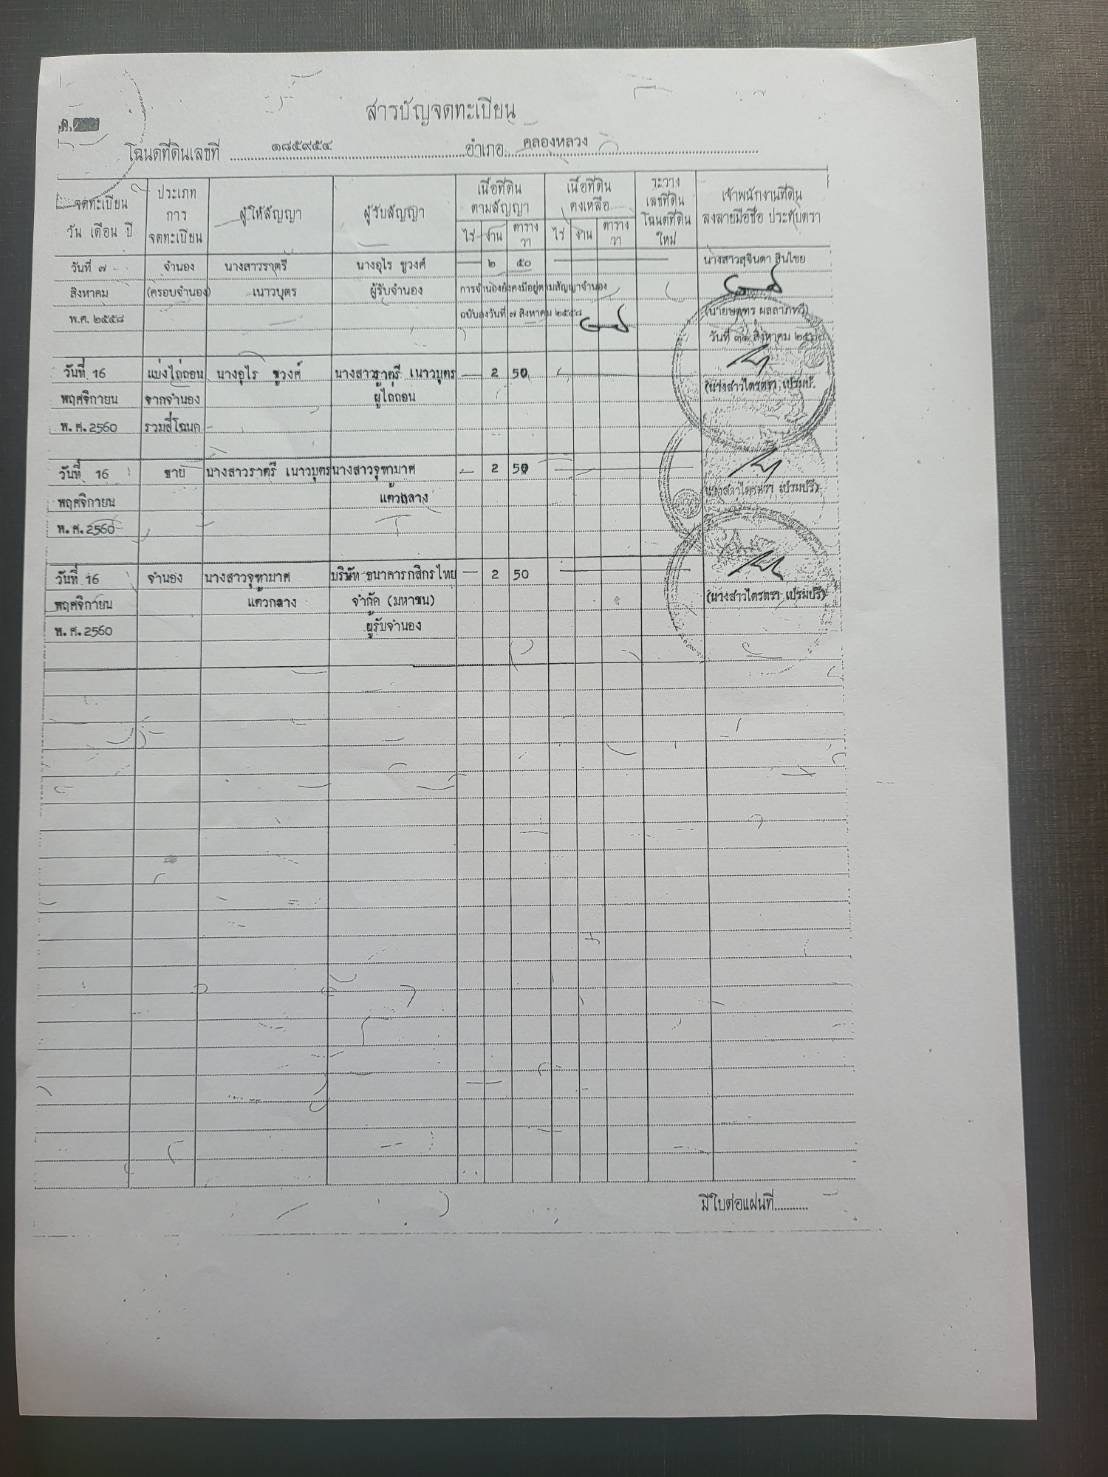 สารบัญจดทะเบียน
โฉนดที่ดินเลขที่ ๑๘๕๙๕๔ อำเภอ คลองหลวง
จดทะเบียน วัน เดือน ปี
ประเภทการจดทะเบียน
ผู้ให้สัญญา
ผู้รับสัญญา
เนื้อที่ดินตามสัญญา
เนื้อที่ดินคงเหลือ
ระวาง เลขที่ดิน โฉนดที่ดินใหม่
เจ้าพนักงานที่ดิน ลงลายมือชื่อ ประทับตรา
ไร่ งาน ตารางวา ไร่ งาน ตารางวา
วันที่ ๗ จำนอง นางสาวราตรี นางอุไร ชูวงศ์ ๒ ๕๐ นางสาวสุจินดา สินไชย
สิงหาคม (ครอบจำนอง) เนาวบุตร ผู้รับจำนอง การจำนองยังคงมีอยู่ตามสัญญาจำนอง
พ.ศ. ๒๕๕๘ ฉบับลงวันที่ ๗ สิงหาคม ๒๕๕๘
วันที่ 16 แบ่งไถ่ถอน นางอุไร ชูวงศ์ นางสาวราตรี เนาวบุตร 2 50
พฤศจิกายน จากจำนอง ผู้ไถ่ถอน
พ.ศ. 2560 รวมสี่โฉนด
วันที่ 16 ขาย นางสาวราตรี เนาวบุตร นางสาวจุฑามาศ 2 50
พฤศจิกายน แก้วกลาง (นางสาวไตรตรา เปรมปรี)
พ.ศ. 2560
วันที่ 16 จำนอง นางสาวจุฑามาศ บริษัท ธนาคารกสิกรไทย 2 50
พฤศจิกายน แก้วกลาง จำกัด (มหาชน) (นางสาวไตรตรา เปรมปรี)
พ.ศ. 2560 ผู้รับจำนอง
มีใบต่อแผ่นที่